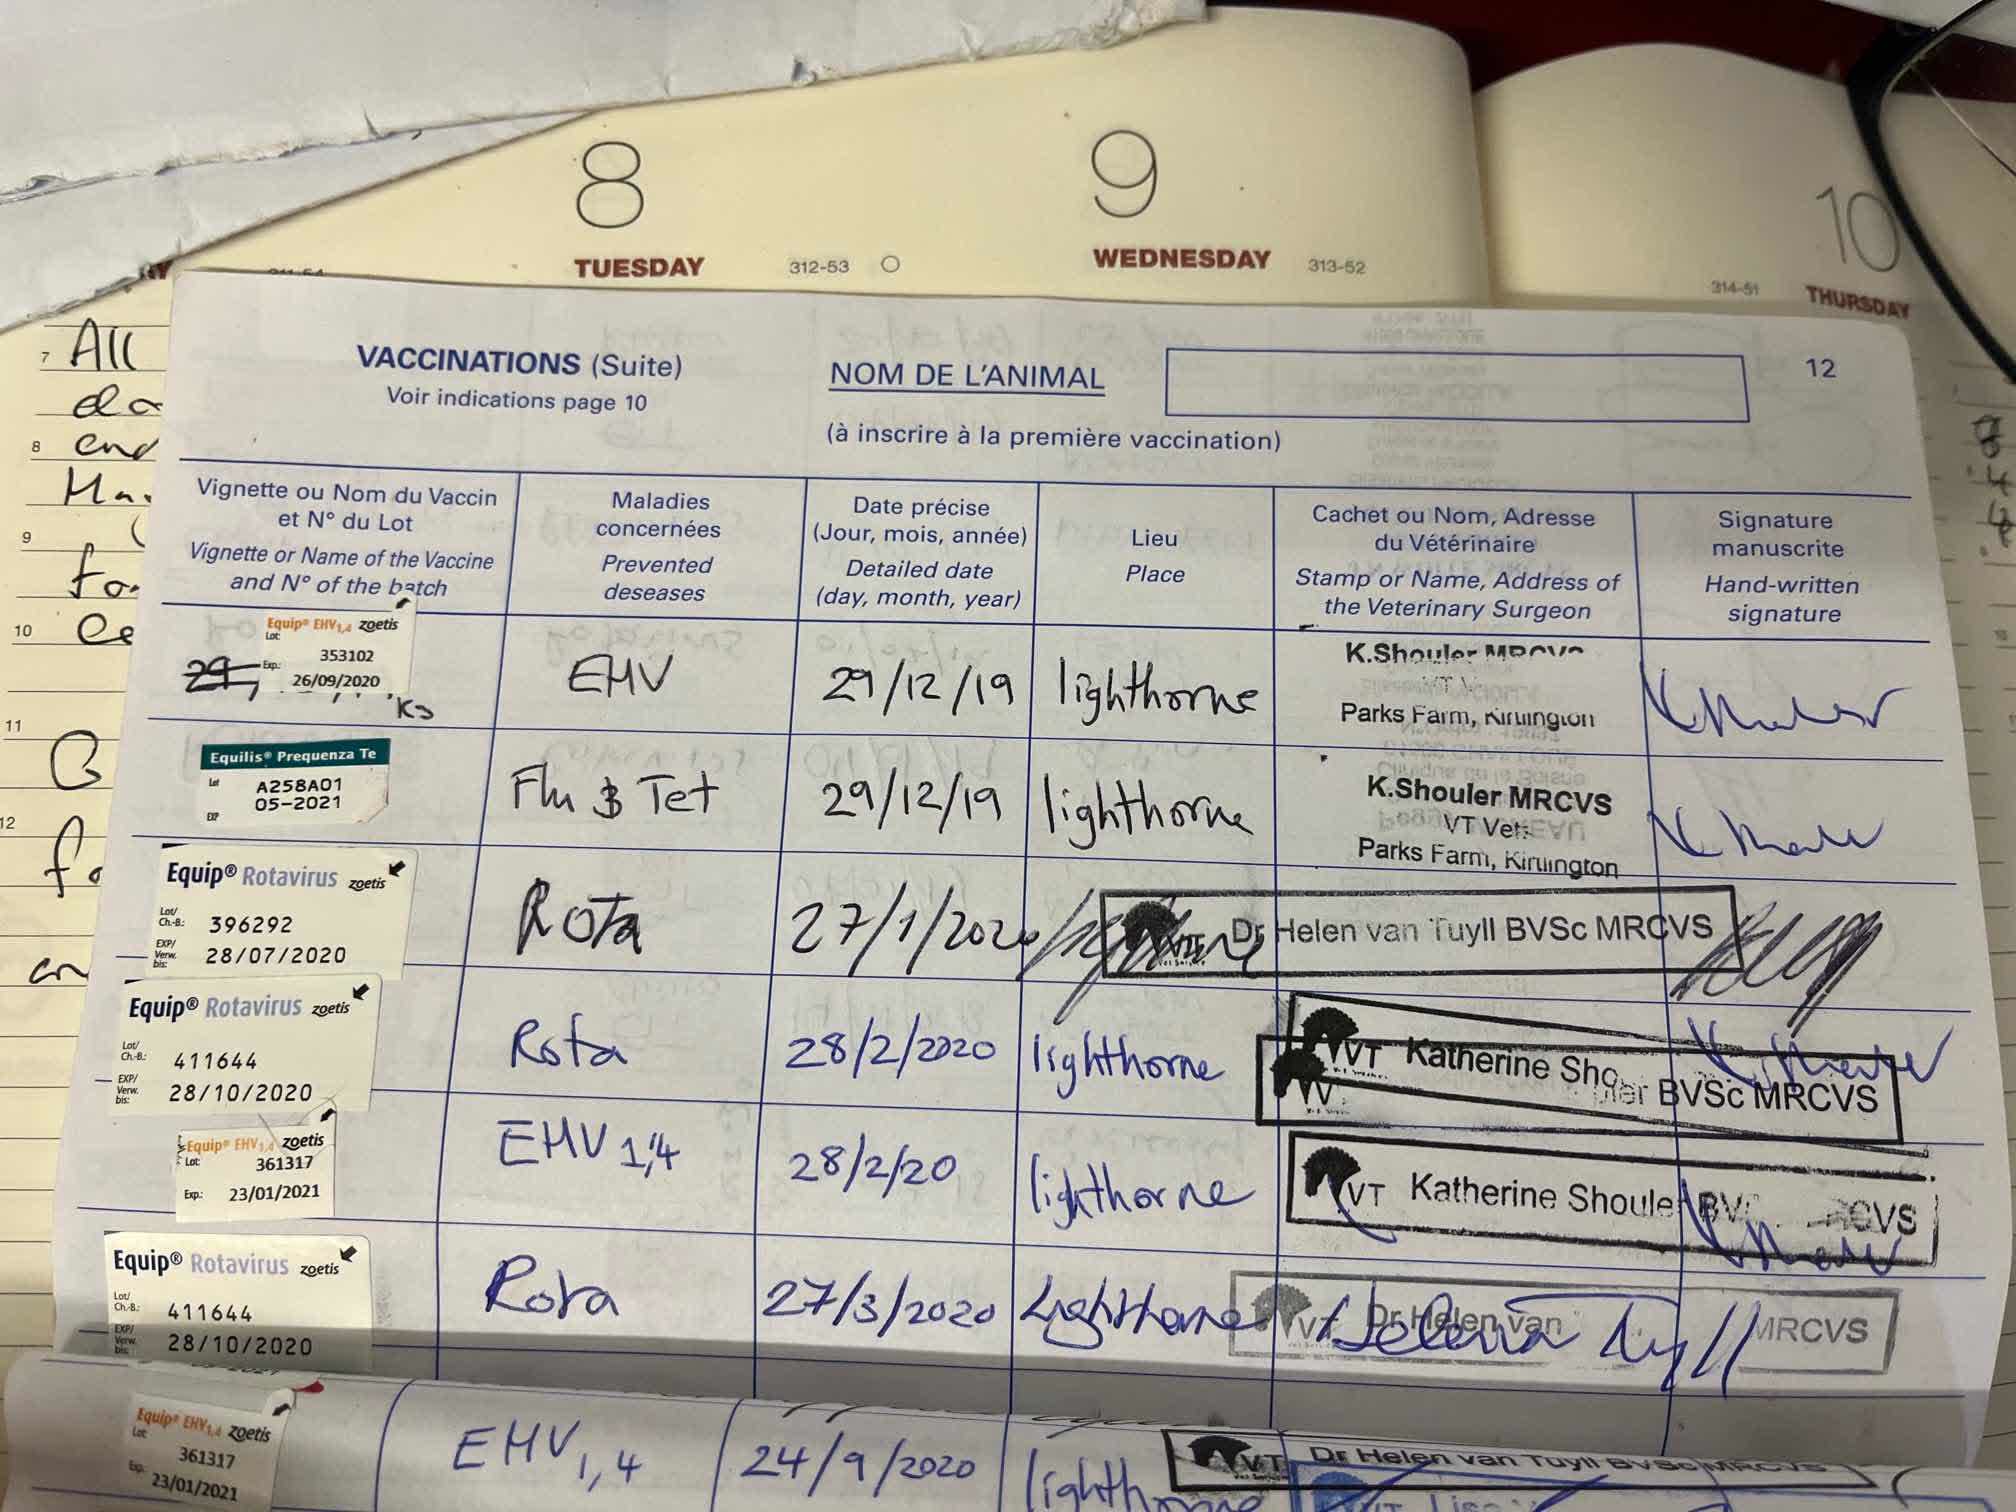 8
TUESDAY
312-53
9
WEDNESDAY
313-52
10
THURSDAY
314-51
7 All
8 end
9
10
11
12
VACCINATIONS (Suite)
Voir indications page 10
NOM DE L'ANIMAL
(à inscrire à la première vaccination)
12
Vignette ou Nom du Vaccin
et N° du Lot
Vignette or Name of the Vaccine
and N° of the batch
Maladies
concernées
Prevented
deseases
Date précise
(Jour, mois, année)
Detailed date
(day, month, year)
Lieu
Place
Cachet ou Nom, Adresse
du Vétérinaire
Stamp or Name, Address of
the Veterinary Surgeon
Signature
manuscrite
Hand-written
signature
Equip® EHV1,4 zoetis
Lot: 353102
Exp.: 26/09/2020
KS
EHV
29/12/19
lighthorne
K.Shouler MRCVS
Parks Farm, Kirtlington
Equilis® Prequenza Te
Lot A258A01
EXP 05-2021
Flu & Tet
29/12/19
lighthorne
K.Shouler MRCVS
VT Vets
Parks Farm, Kirtlington
Equip® Rotavirus zoetis
Lot/
Ch.-B.: 396292
EXP/
Verw.
bis: 28/07/2020
Rota
27/1/2020
VT
Dr Helen van Tuyll BVSc MRCVS
Equip® Rotavirus zoetis
Lot/
Ch.-B.: 411644
EXP/
Verw.
bis: 28/10/2020
Rota
28/2/2020
lighthorne
VT Katherine Sho
BVSc MRCVS
Equip® EHV1,4 zoetis
Lot: 361317
Exp.: 23/01/2021
EHV 1,4
28/2/20
lighthorne
VT Katherine Shouler
Equip® Rotavirus zoetis
Lot/
Ch.-B.: 411644
EXP/
Verw.
bis: 28/10/2020
Rota
27/3/2020
Lighthorne
VT Dr Helen van MRCVS
Equip® EHV1,4 zoetis
Lot: 361317
Exp.: 23/01/2021
EHV 1,4
24/9/2020
VT
Dr Helen van Tuyll BVSc MRCVS